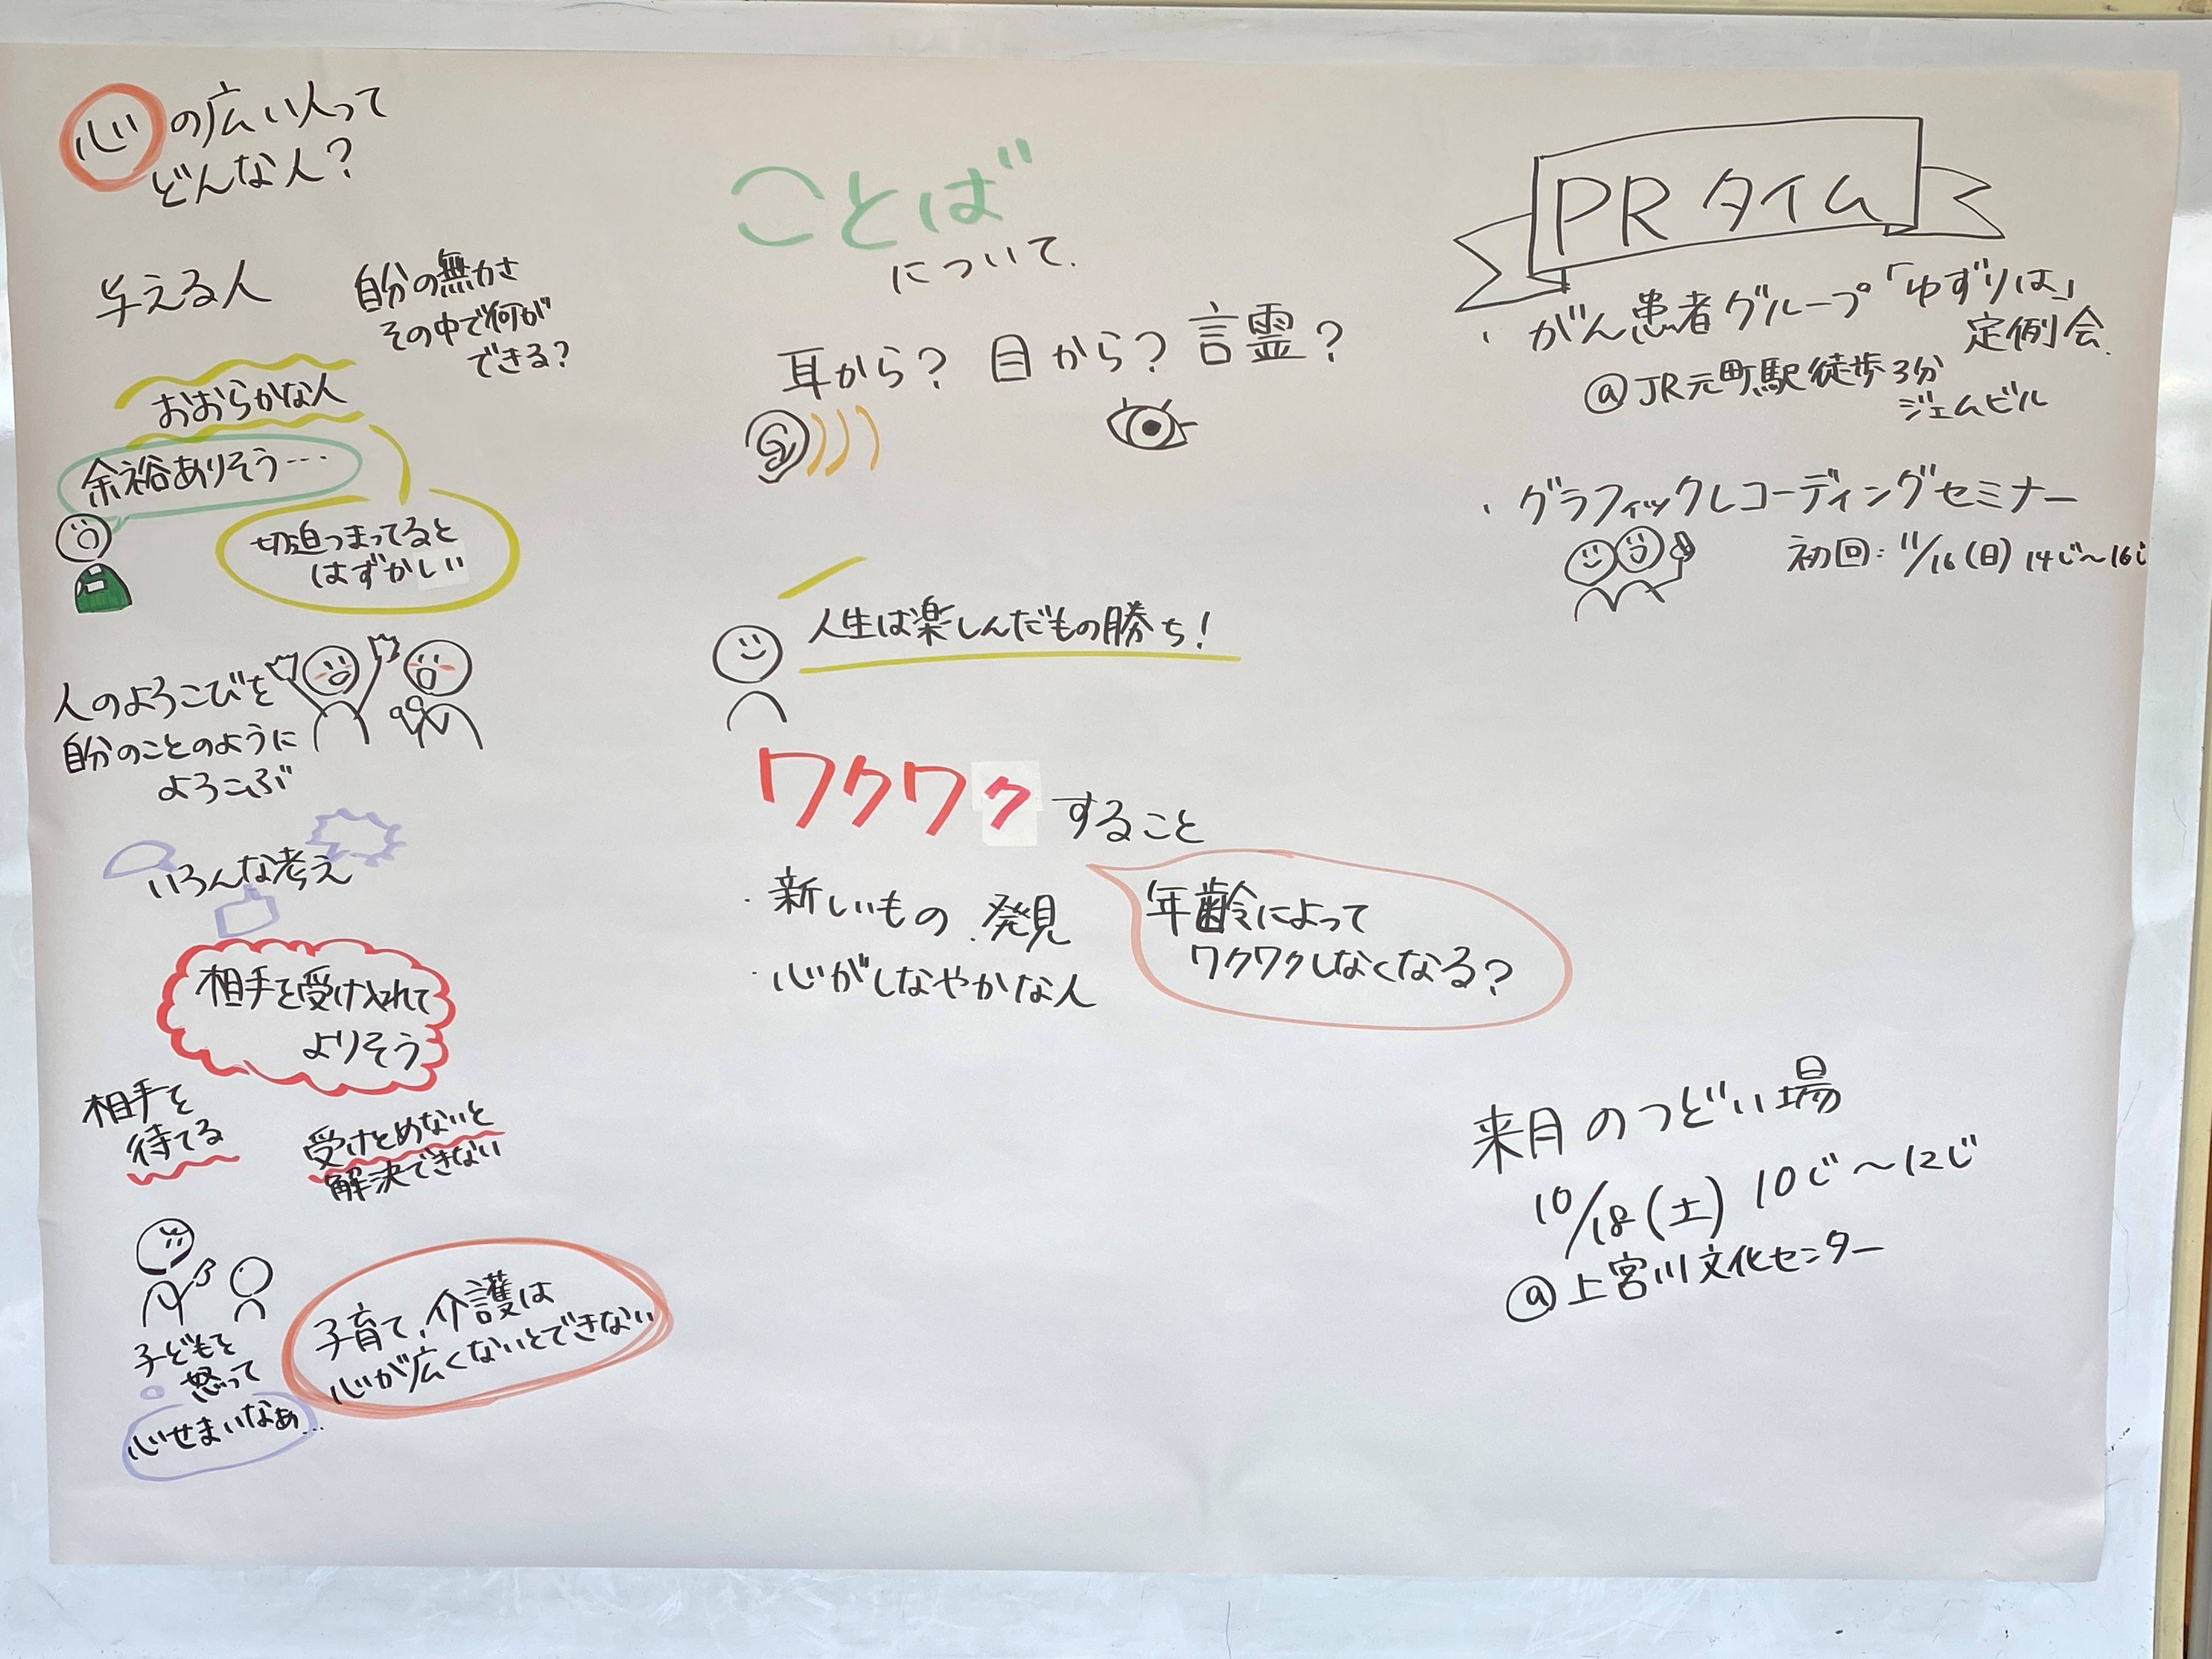 心の広い人って
どんな人？
与える人
自分の無力さ
その中で何が
できる？
おおらかな人
余裕ありそう…
切迫つまってると
はずかしい
人のよろこびを
自分のことのように
よろこぶ
いろんな考え
相手を受け入れて
よりそう
相手を
待てる
受けとめないと
解決できない
子どもを
怒って
心せまいなぁ…
子育て、介護は
心が広くないとできない
ことば
について.
耳から？ 目から？ 言霊？
人生は楽しんだもの勝ち！
ワクワクすること
・新しいもの、発見
・心がしなやかな人
年齢によって
ワクワクしなくなる？
PRタイム
・がん患者グループ「ゆずりは」
定例会.
@JR元町駅徒歩3分
ジェムビル
・グラフィックレコーディングセミナー
初回：11/16（日）14じ〜16じ
来月のつどい場
10/18（土）10じ〜12じ
@上宮川文化センター